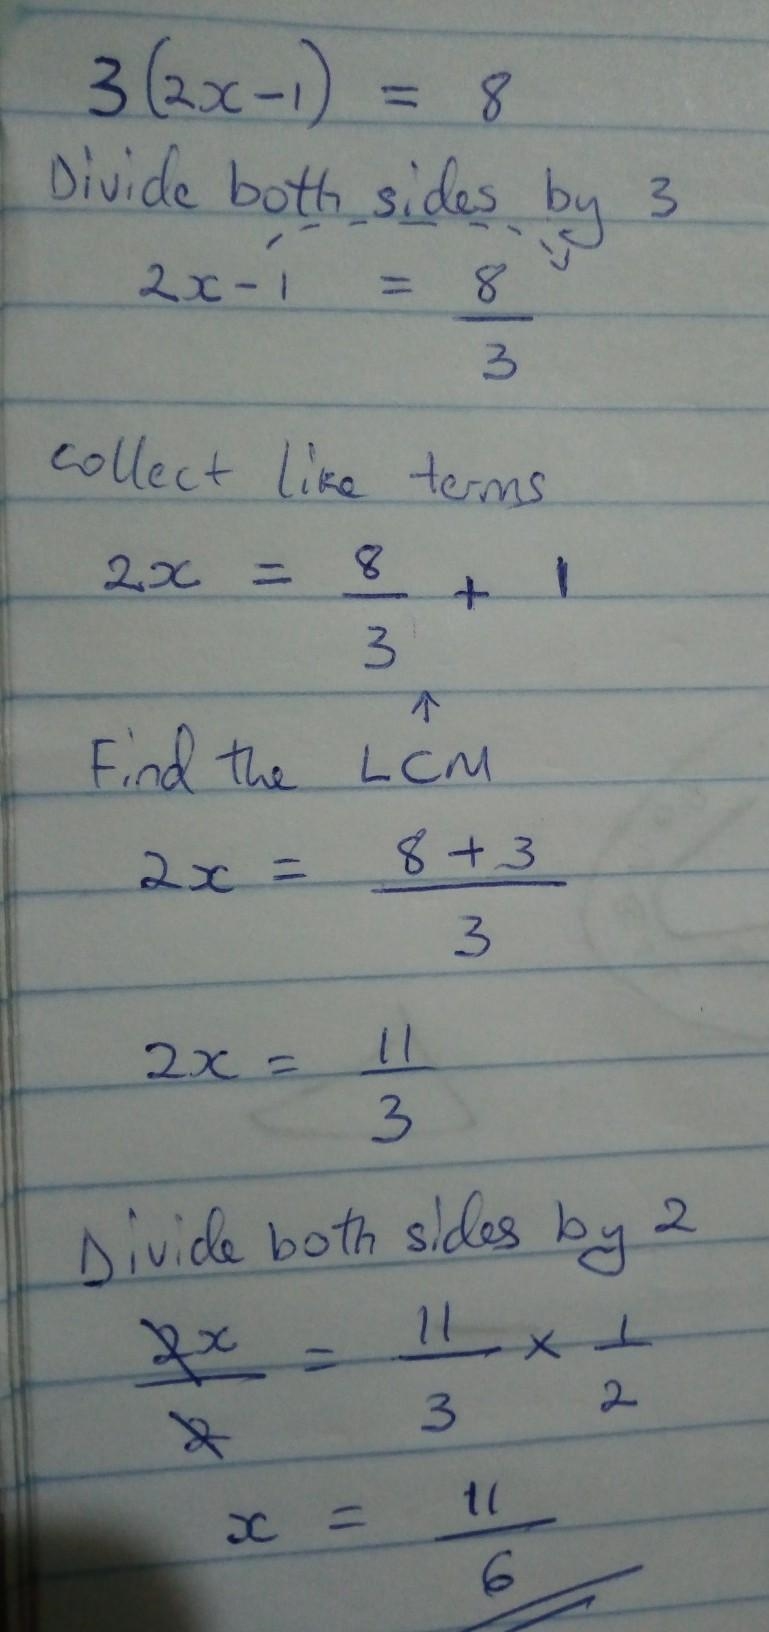 3(2x-1) = 8
Divide both sides by 3
2x-1 = 8/3
collect like terms
2x = 8/3 + 1
↑
Find the LCM
2x = 8+3/3
2x = 11/3
Divide both sides by 2
2x/2 = 11/3 × 1/2
x = 11/6